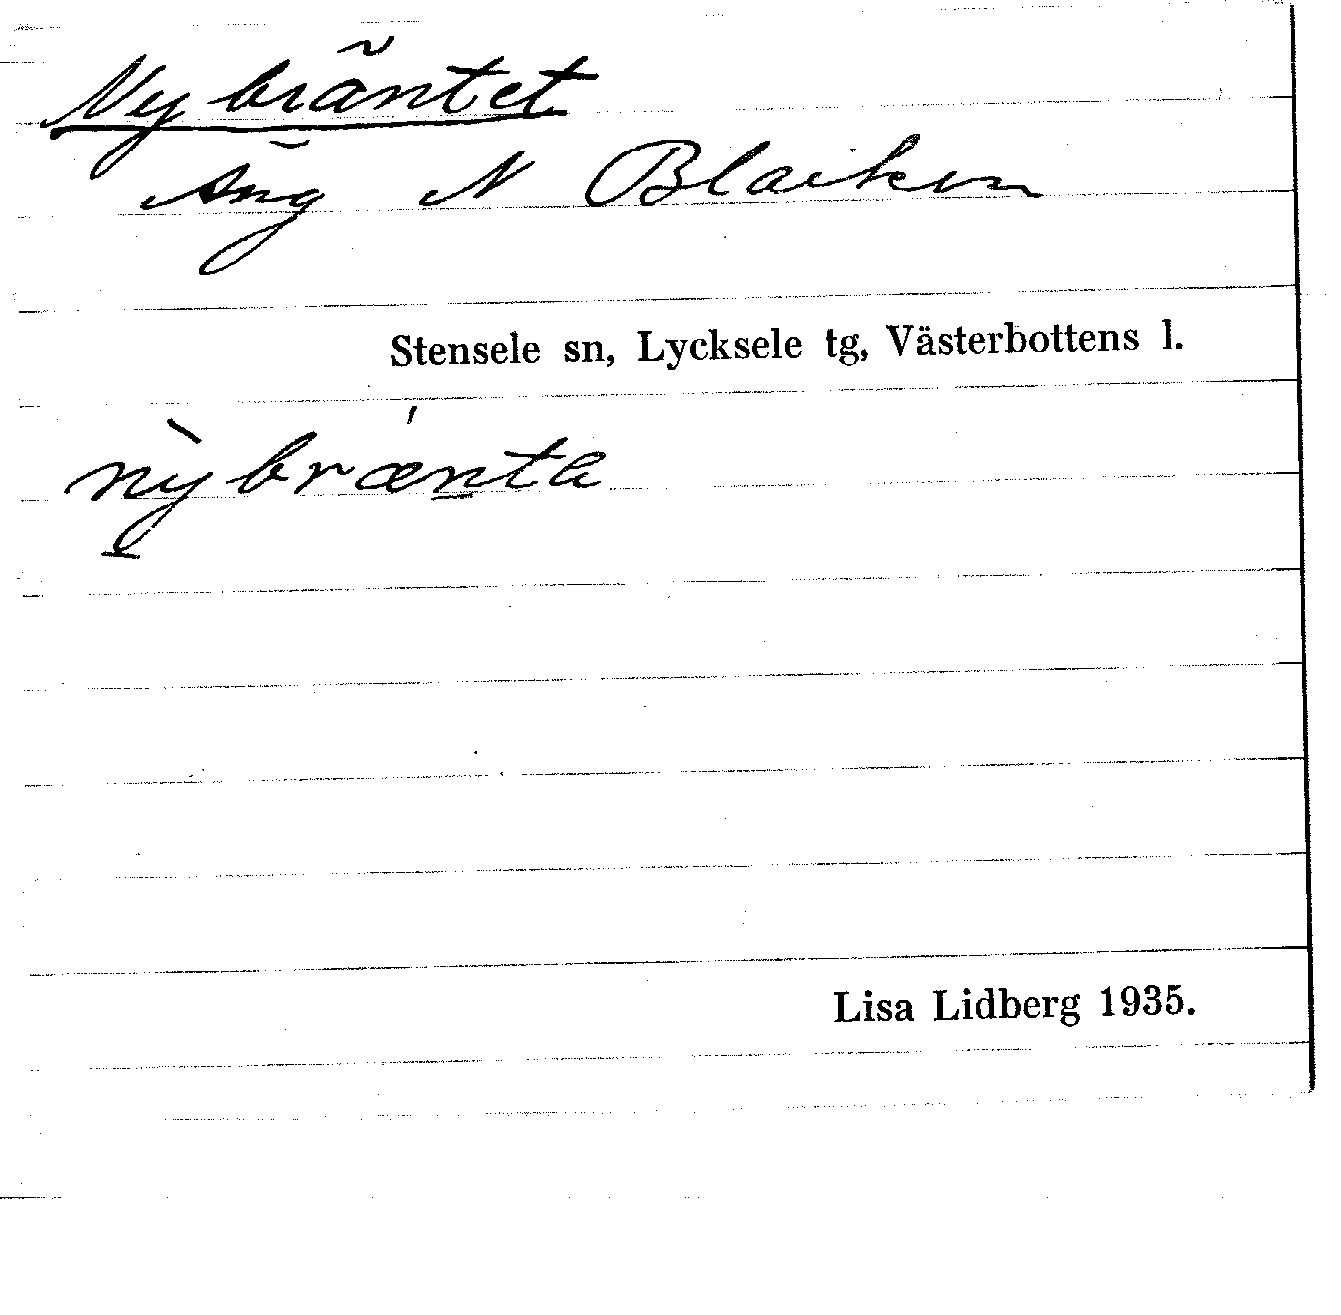 Nybräntet
Äng N Blaiken
Stensele sn, Lycksele tg, Västerbottens l.
nỳbrǽnta
Lisa Lidberg 1935.